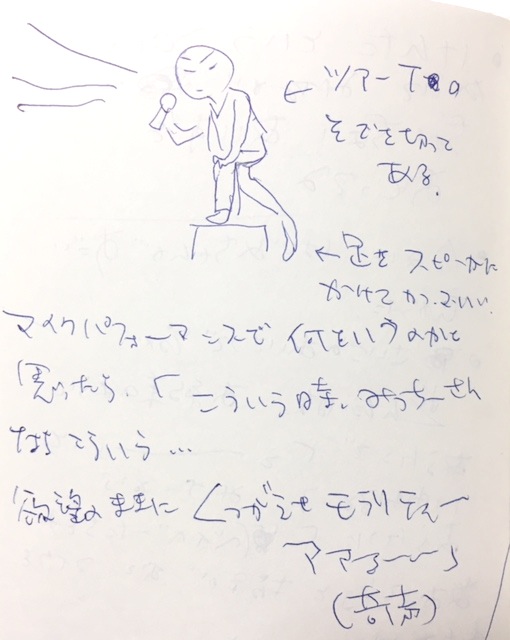 ← ツアーTの
そでを切って
ある。
← 足をスピーカに
かけてかっこいい。
マイクパフォーマンスで何をいうのかと
思ったら、「こういう時、みっちーさん
ならこういう…
欲望のままに くつがえせ モラリティー
アァる〜〜ら